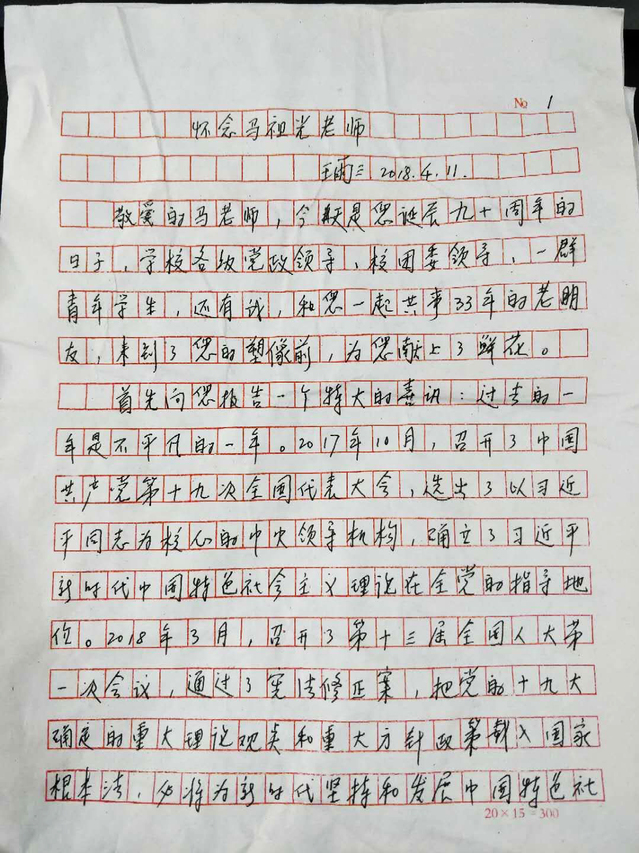 No 1
怀念马祖光老师
王雨三 2018.4.11.
敬爱的马老师，今天是您诞辰九十周年的
日子，学校各级党政领导，校团委领导，一群
青年学生，还有我，和您一起共事33年的老朋
友，来到了您的塑像前，为您献上了鲜花。
首先向您报告一个特大的喜讯：过去的一
年是不平凡的一年。2017年10月，召开了中国
共产党第十九次全国代表大会，选出了以习近
平同志为核心的中央领导机构，确立了习近平
新时代中国特色社会主义理论在全党的指导地
位。2018年3月，召开了第十三届全国人大第
一次会议，通过了宪法修正案，把党的十九大
确定的重大理论观点和重大方针政策载入国家
根本法，必将为新时代坚持和发展中国特色社
20×15=300